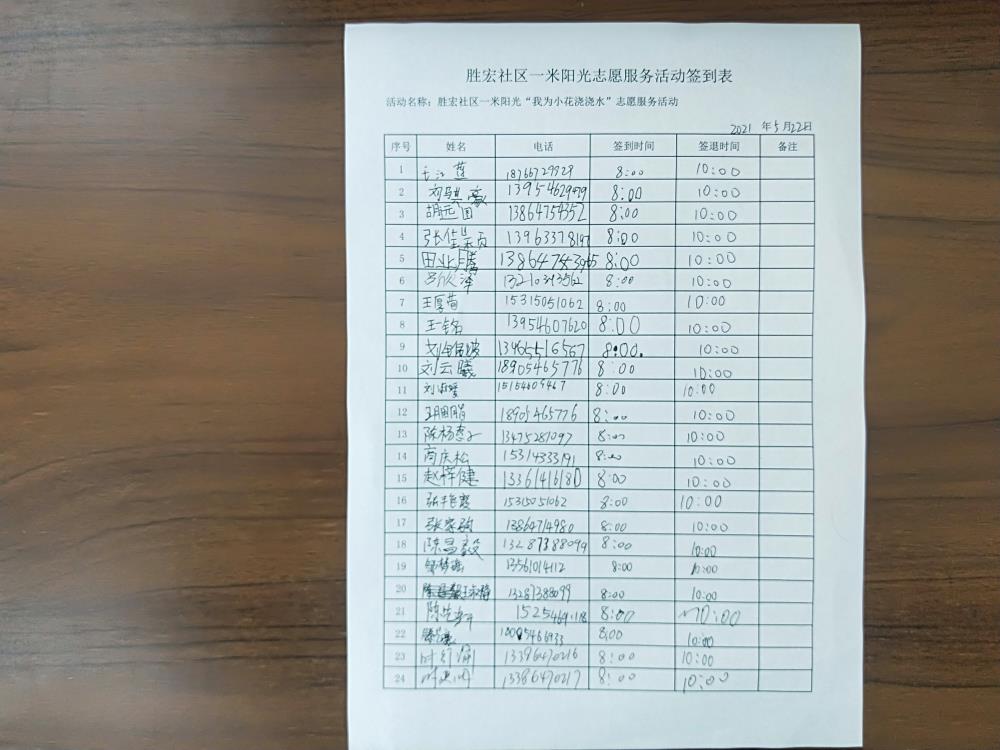 胜宏社区一米阳光志愿服务活动签到表
活动名称：胜宏社区一米阳光“我为小花浇浇水”志愿服务活动
2021 年5月22日
序号 姓名 电话 签到时间 签退时间 备注
1 18766729929 8:00 10:00
2 13954629979 8:00 10:00
3 胡远国 13864754352 8:00 10:00
4 13963378197 8:00 10:00
5 田业腾 8:00 10:00
6 吕欣泽 8:00 10:00
7 王厚菊 15315051062 8:00 10:00
8 王铭 13954607620 8:00 10:00
9 13465516567 8:00. 10:00
10 刘云曦 18905465776 8:00 10:00
11 8:00 10:00
12 18905465776 8:00 10:00
13 13475281097 8:00 10:00
14 商庆松 15314333191 8:00 10:00
15 赵梓健 13361416180 8:00 10:00
16 张艳霞 15315051062 8:00 10:00
17 13864714980 8:00 10:00
18 陈昌毅 13287388099 8:00 10:00
19 13561014112 8:00 10:00
20 13287388099 8:00 10:00
21 8:00 10:00
22 8:00 10:00
23 13396470216 8:00 10:00
24 13386470217 8:00 10:00